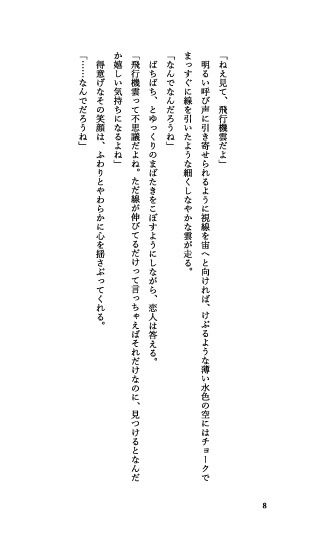 「ねえ見て、飛行機雲だよ」
明るい呼び声に引き寄せられるように視線を宙へと向ければ、けぶるような薄い水色の空にはチョークで
まっすぐに線を引いたような細くしなやかな雲が走る。
「なんでなんだろうね」
ぱちぱち、とゆっくりのまばたきをこぼすようにしながら、恋人は答える。
「飛行機雲って不思議だよね。ただ線が伸びてるだけって言っちゃえばそれだけなのに、見つけるとなんだ
か嬉しい気持ちになるよね」
得意げなその笑顔は、ふわりとやわらかに心を揺さぶってくれる。
「……なんでだろうね」
8